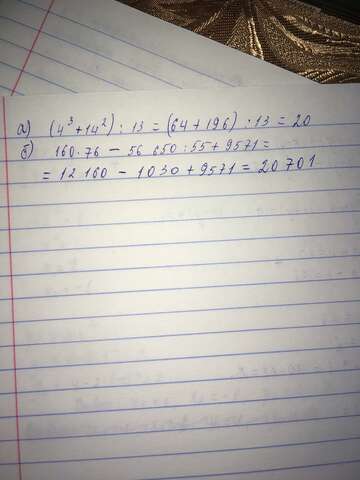 а) (4³+14²) : 13 = (64+196) : 13 = 20
б) 160·76 − 56 650 : 55 + 9571 =
= 12 160 − 1030 + 9571 = 20 701